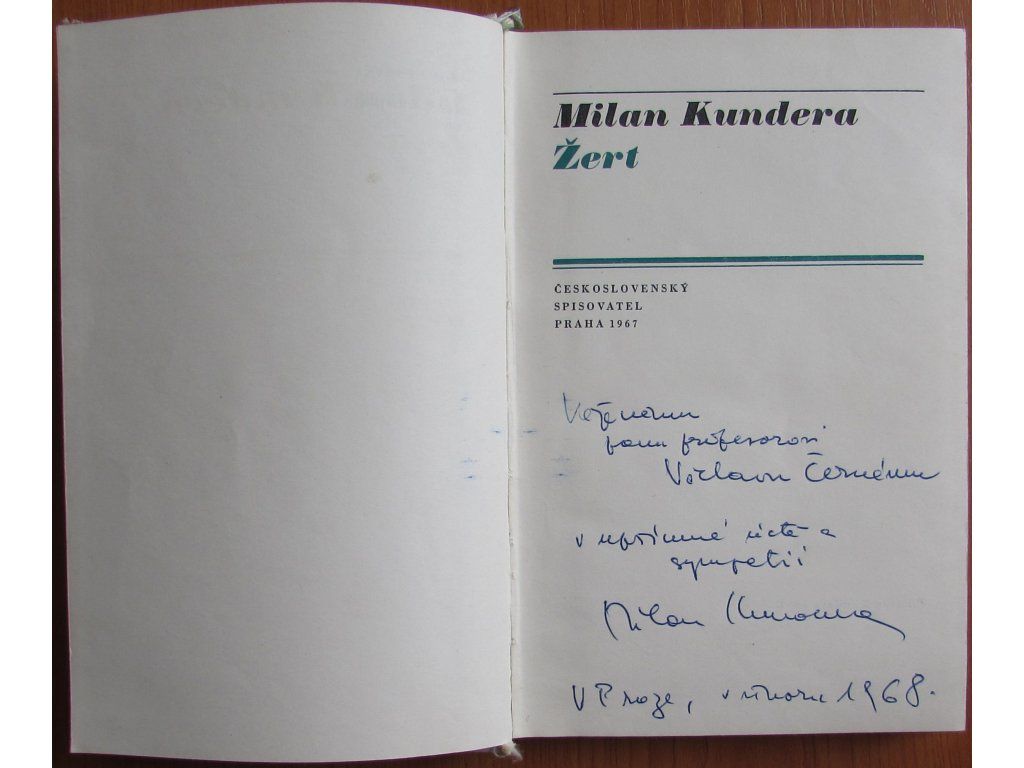 Milan Kundera
Žert
ČESKOSLOVENSKÝ
SPISOVATEL
PRAHA 1967
Váženému
panu profesorovi
Václavu Černému
v upřímné úctě a
sympatii
Milan Kundera
V Praze, v únoru 1968.